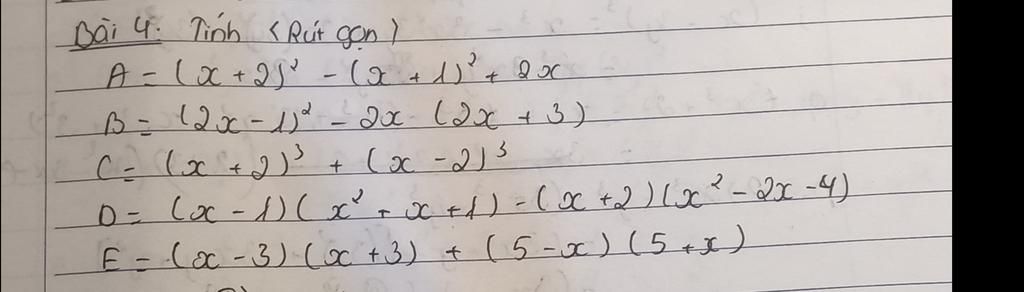 Bài 4: Tính (Rút gọn)
A = (x + 2)² - (x + 1)² + 2x
B = (2x - 1)² - 2x (2x + 3)
C = (x + 2)³ + (x - 2)³
D = (x - 1)(x² + x + 1) - (x + 2)(x² - 2x - 4)
E = (x - 3)(x + 3) + (5 - x)(5 + x)